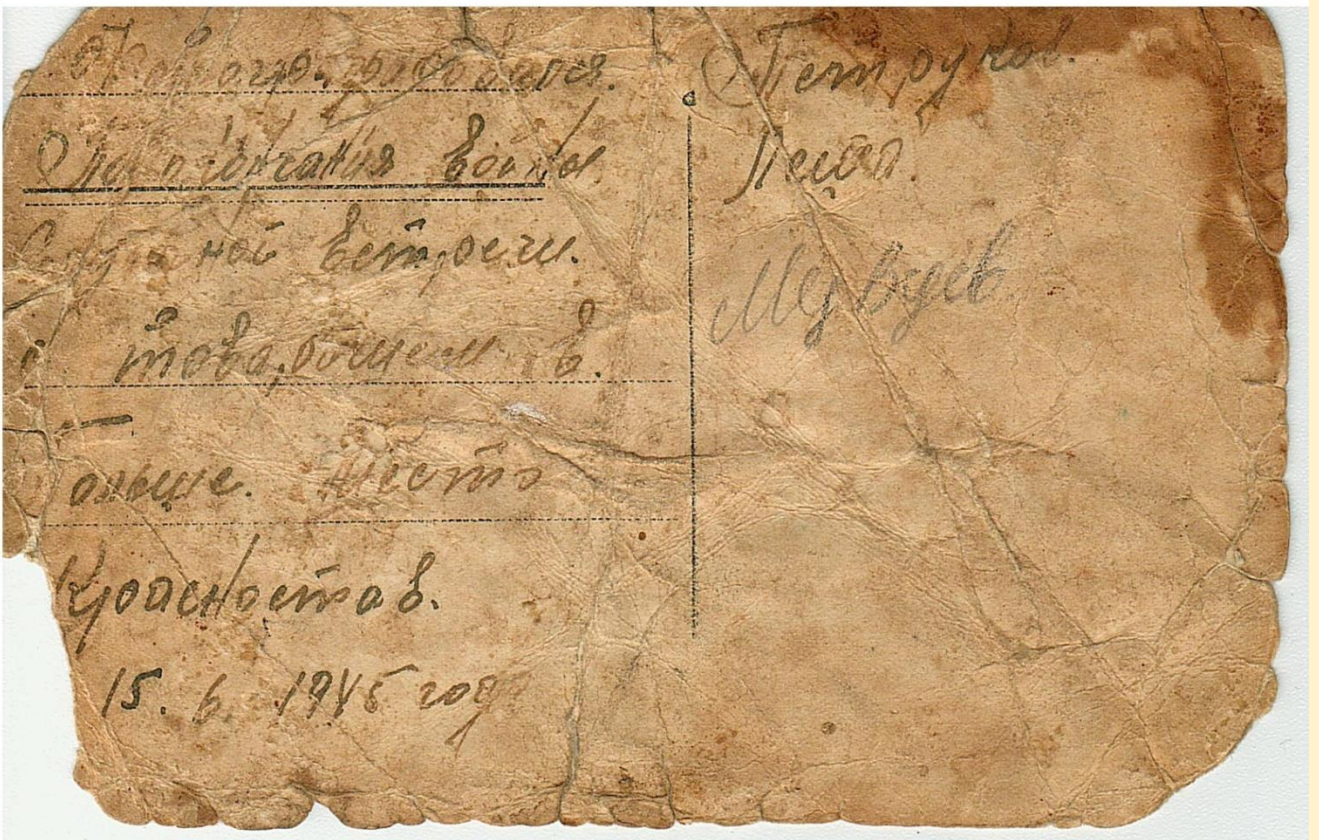 Фотографировался.
После окончания войны
Случайной встречи.
с товарищем в.
Польше. Место
Красностав.
15. 6. 1945 года
Петруков.
Петя.